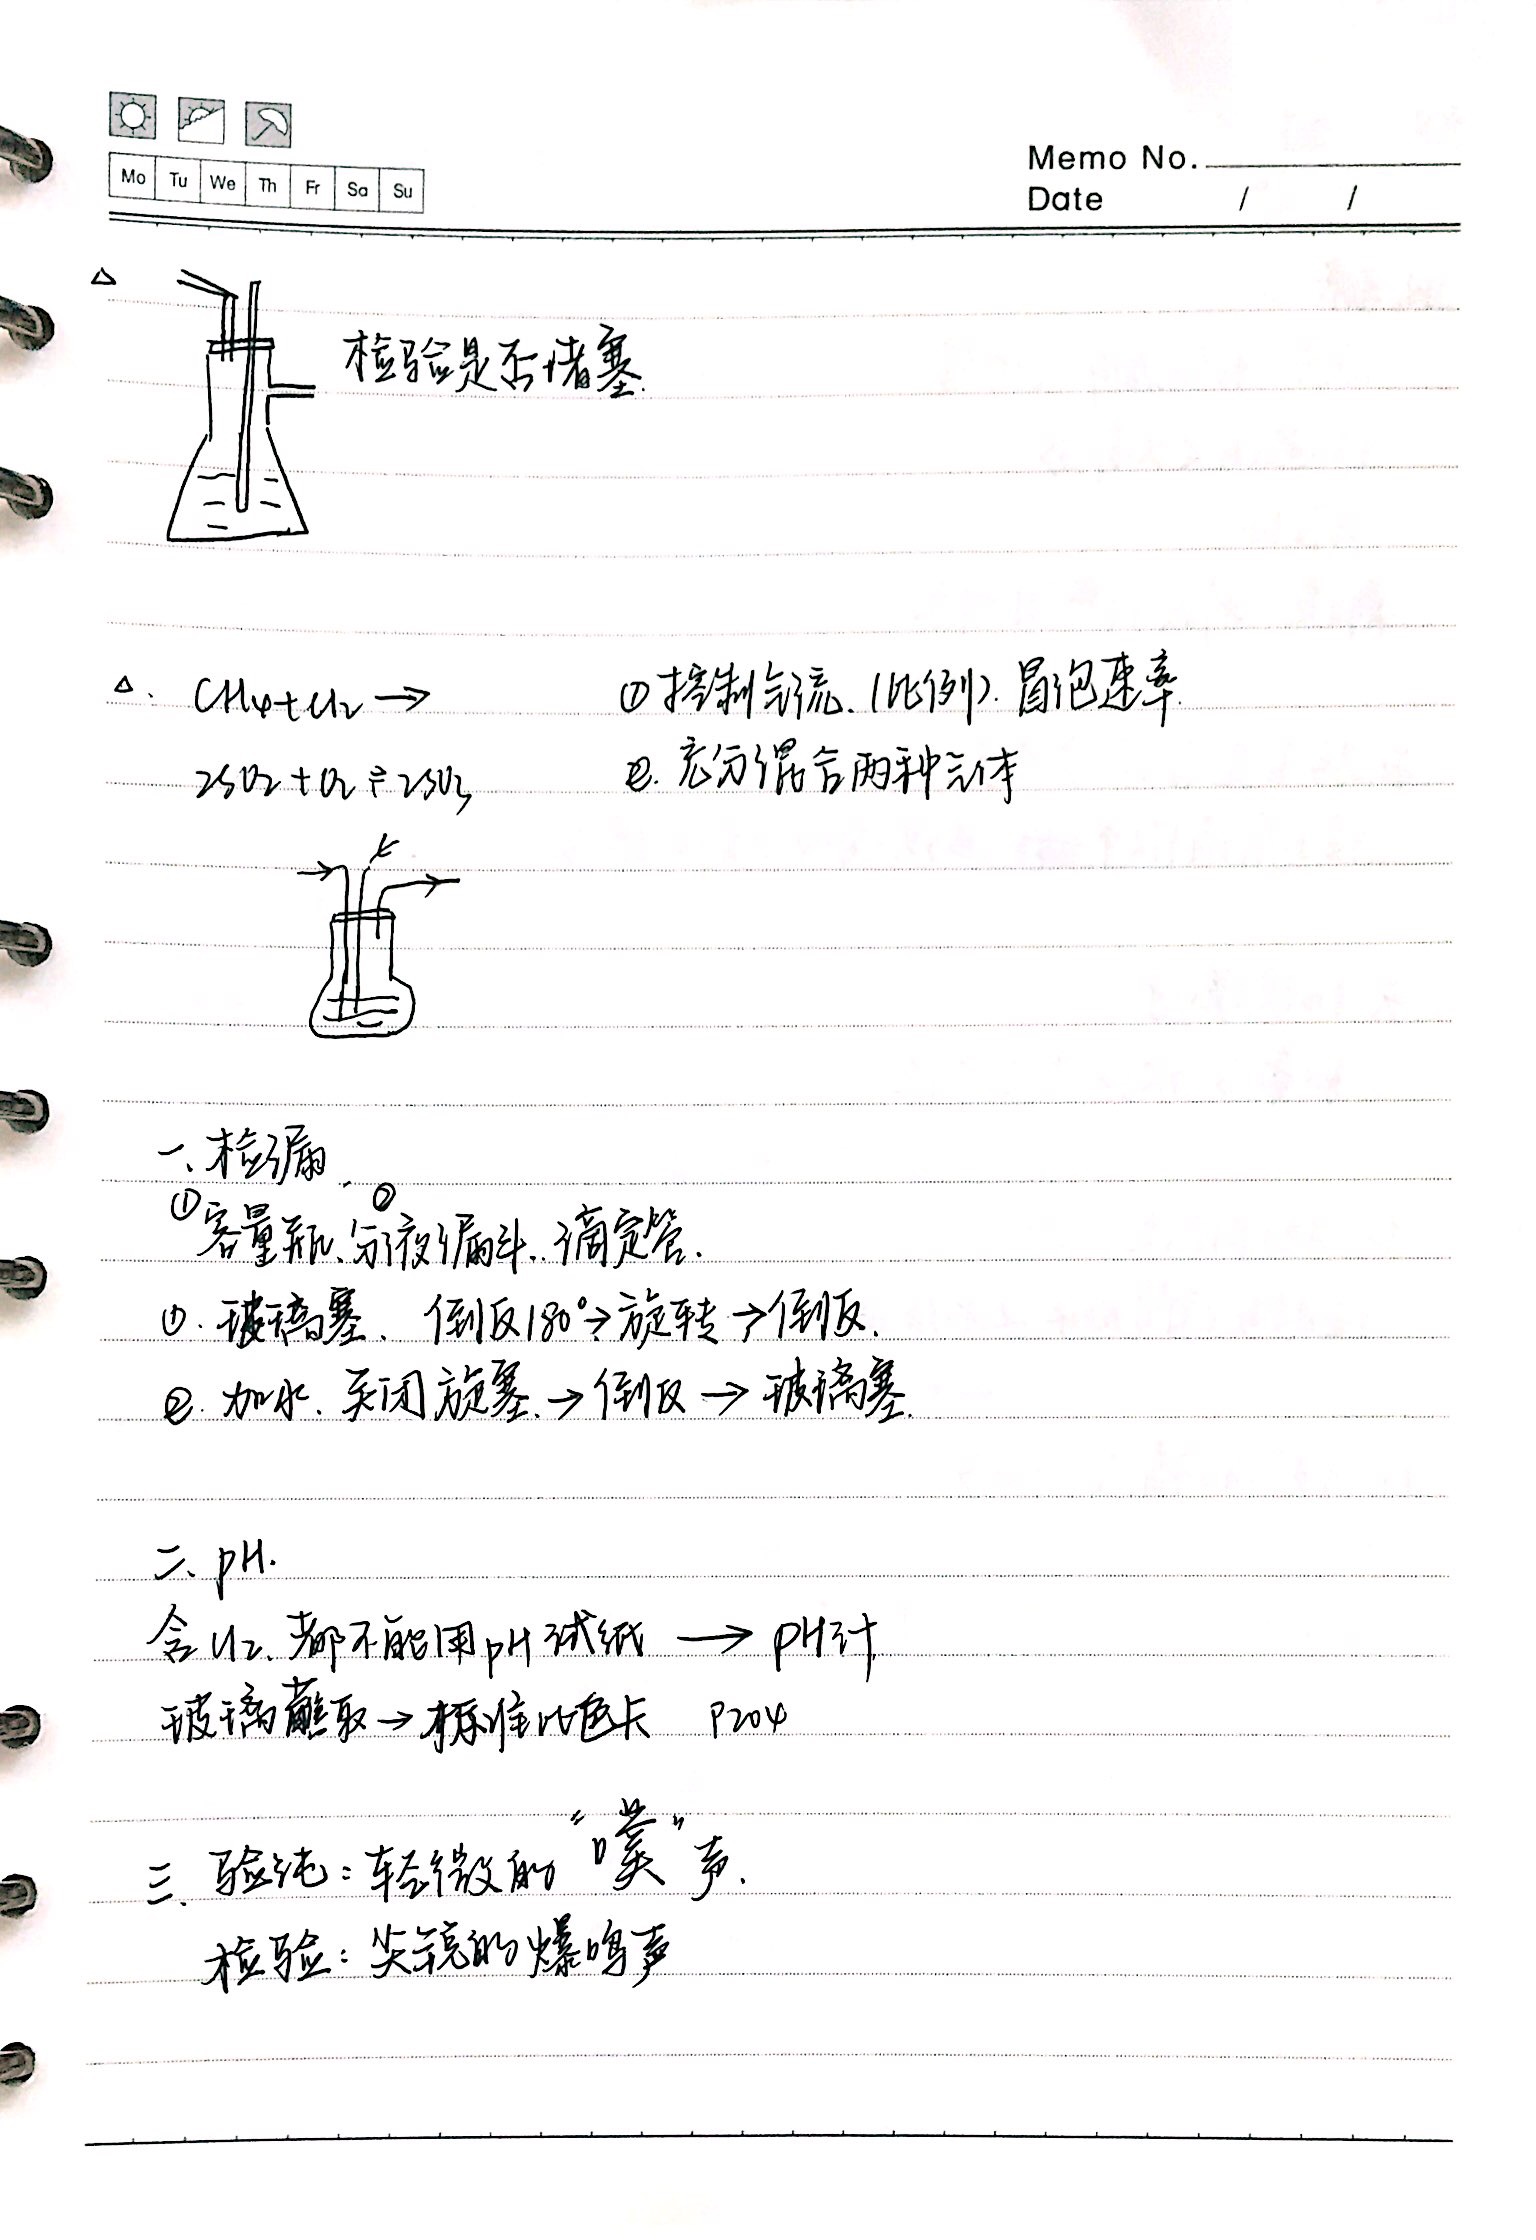 Mo Tu We Th Fr Sa Su
Memo No.
Date / /
△ 检验是否堵塞.
△. CH₄+Cl₂ → ①控制气流.(比例).冒泡速率.
2SO₂+O₂⇌2SO₃ ②.充分混合两种气体
一、检漏
① ②
容量瓶、分液漏斗、滴定管.
①.玻璃塞. 倒反180°→旋转→倒反.
②.加水.关闭旋塞.→倒反→玻璃塞.
二、pH.
含Cl₂.都不能用pH试纸 → pH计
玻璃蘸取→标准比色卡 P204
三、验纯:轻微的“噗”声.
检验:尖锐的爆鸣声